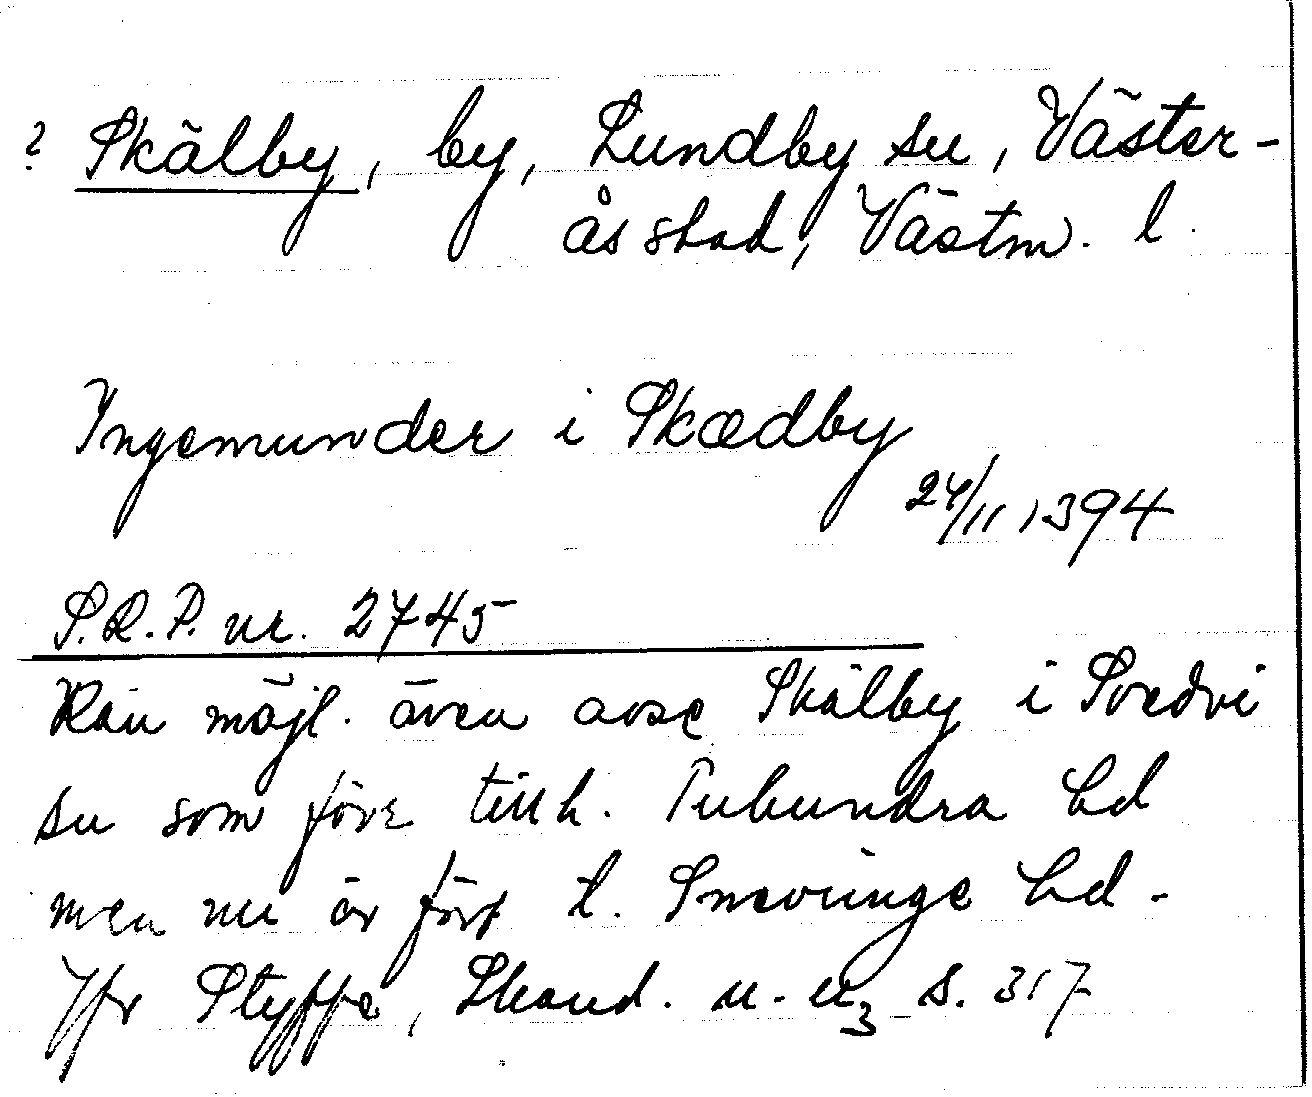 ? Skälby, by, Lundby sn, Väster-
ås stad, Västm. l.
Ingemunder i Skædby
24/11 1394
S.R.P. nr. 2745
Kan möjl. även avse Skälby i Svedvi
sn som förr tillh. Tuhundra hd
men nu är fört t. Snevringe hd.
Jfr Styffe, Skand. u. u3 s. 317